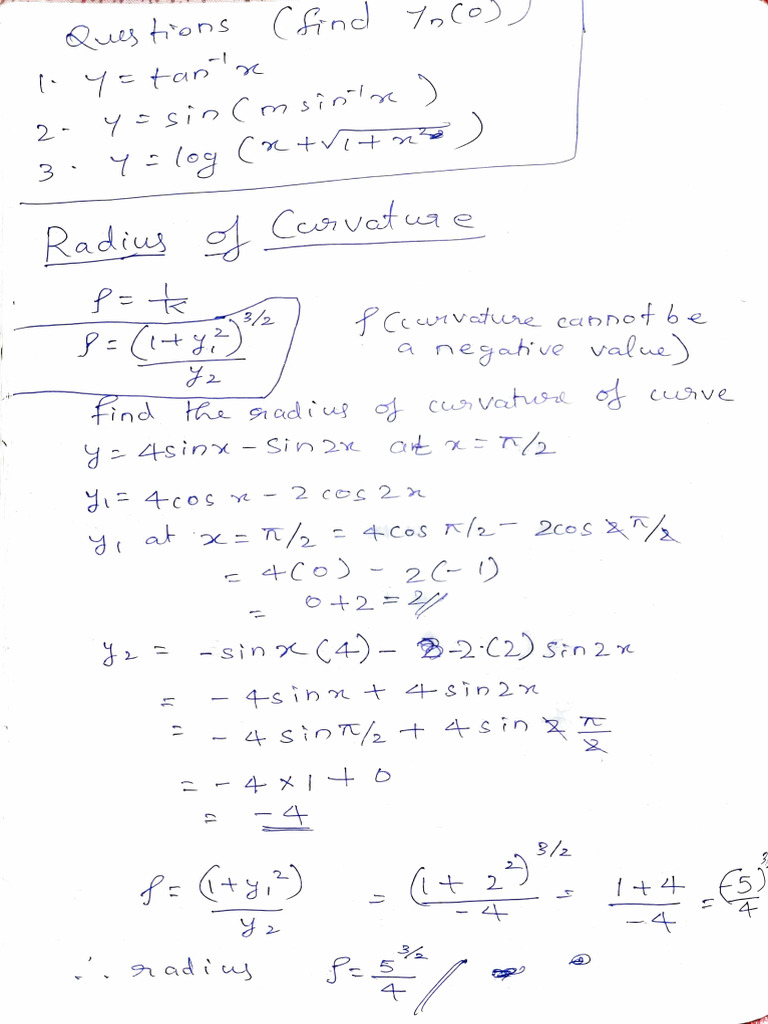 Questions (find yn(0))
1. y = tan⁻¹x
2. y = sin(m sin⁻¹x)
3. y = log (x+√1+x²)
Radius of Curvature
ρ = 1/K
ρ = (1+y₁²)^3/2 / y₂
ρ (curvature cannot be
a negative value)
find the radius of curvature of curve
y = 4sinx - Sin2x at x = π/2
y₁ = 4cosx - 2cos2x
y₁ at x = π/2 = 4cos π/2 - 2cos 2π/2
= 4(0) - 2(-1)
= 0+2 = 2//
y₂ = -sinx(4) - -2·(2) sin2x
= -4sinx + 4sin2x
= -4 sinπ/2 + 4sin 2 π/2
= -4×1+0
= -4
ρ = (1+y₁²)/y₂ = (1+2²)^3/2 / -4 = 1+4/-4 = (-5)^3/4
∴ radius ρ = 5^3/2 / 4 //